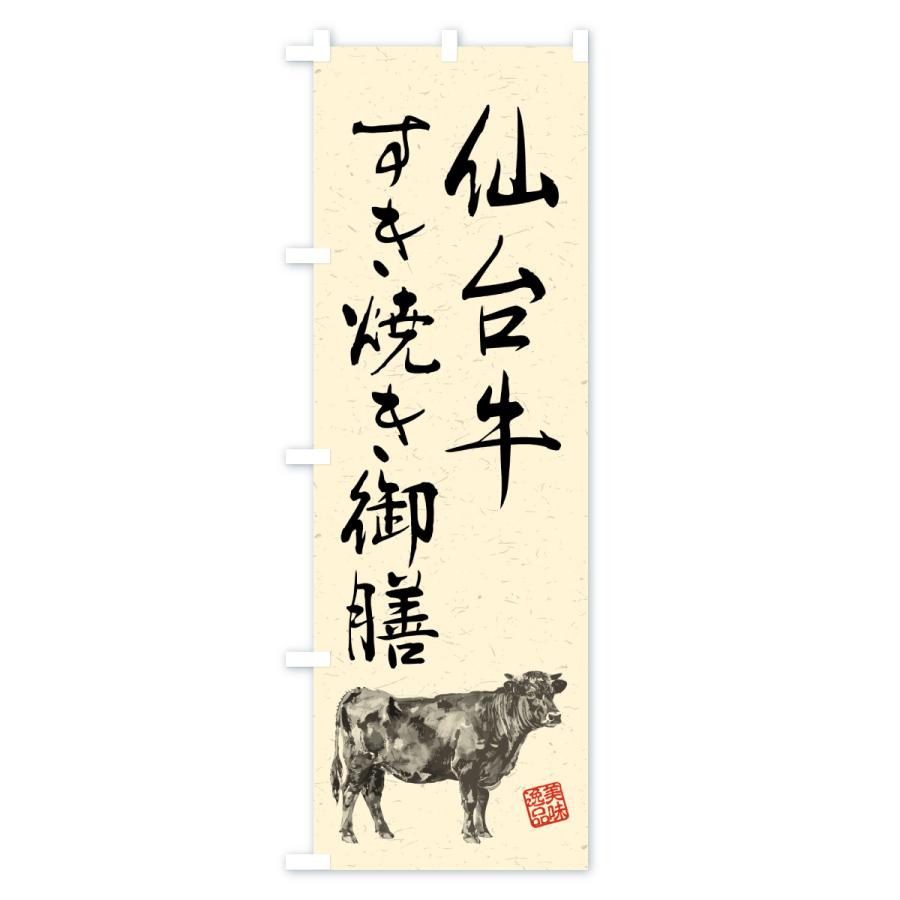 仙台牛
すき焼き御膳
美味
逸品